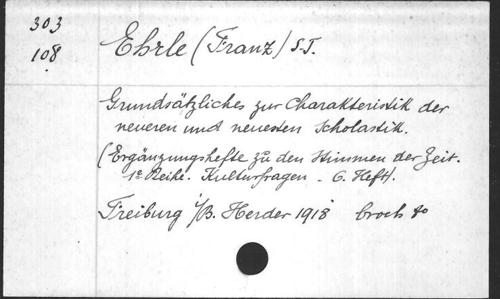 303
108
Ehrle (Franz) S.J.
Grundsätzliches zur Charakteristik der
neueren und neuesten Scholastik.
(Ergänzungshefte zu den Stimmen der Zeit.
1e Reihe. Kulturfragen - 6. Heft).
Freiburg i/B. Herder 1918 broch 8o